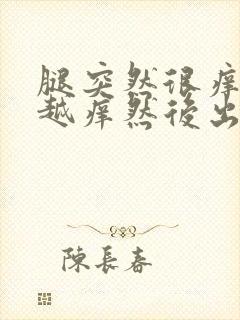 腿突然很痒
越痒然後出
陳長春